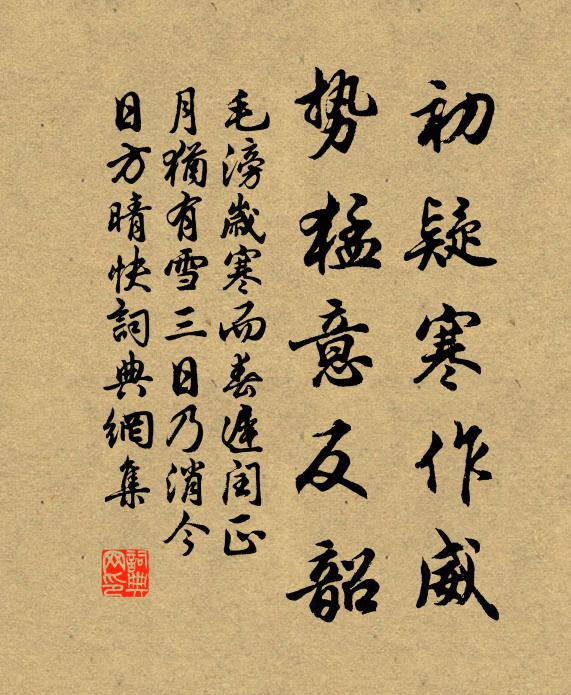 初疑寒作威
勢猛意反韶
毛滂歲寒而春遲閏正
月猶有雪三日乃消今
日方晴快詞典網集
詞典网印